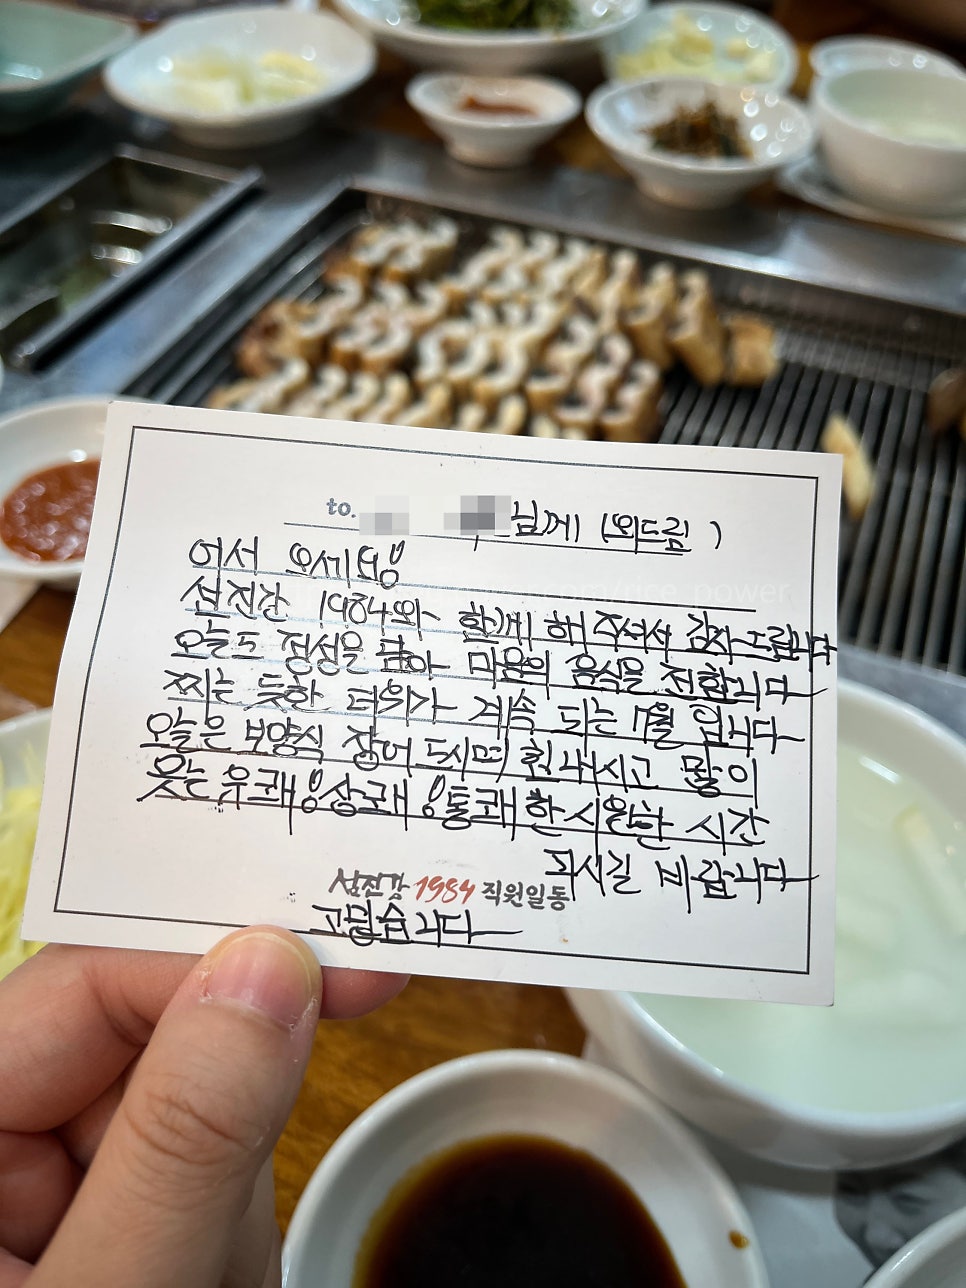 to. 님께 (외드림)
어서 오세요
섬진강 1984와 함께 해 주셔서 감사드립니다
오늘도 정성을 담아 마음의 음식을 전합니다
찌는 듯한 더위가 계속 되는 7월 입니다
오늘은 보양식 장어 드시며 힘내시고 많이
웃는 유쾌, 상쾌, 통쾌한 시원한 시간
되시길 바랍니다
섬진강 1984 직원일동
고맙습니다